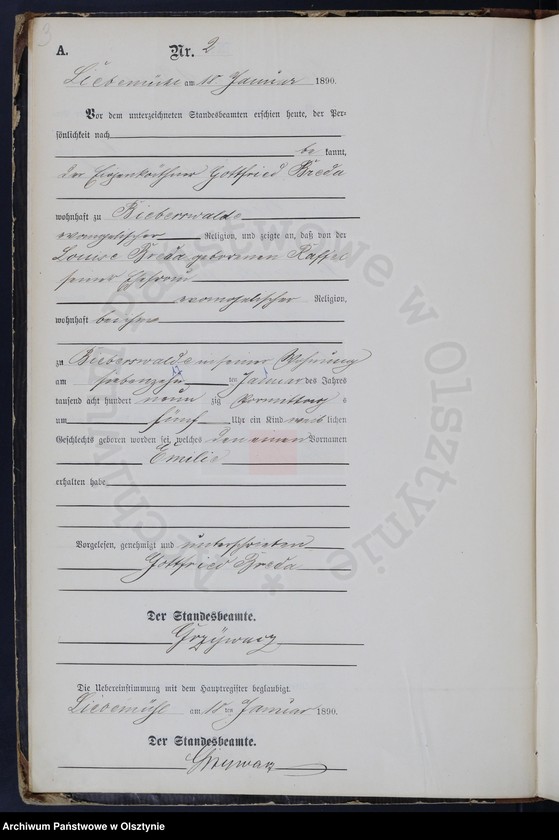 9
A. Nr. 2
Liebemühl am 10 Januar 1890.
Vor dem unterzeichneten Standesbeamten erschien heute, der Per-
sönlichkeit nach
be kannt,
der Eigenkäthner Gottfried Breda
wohnhaft zu Bieberswalde
evangelischer Religion, und zeigte an, daß von der
Louise Breda geborenen
seiner Ehefrau
evangelischer Religion,
wohnhaft bei ihm
zu Bieberswalde in seiner Wohnung
am ten Januar des Jahres
tausend acht hundert neun zig Vormittags
um fünf Uhr ein Kind weib lichen
Geschlechts geboren worden sei, welches den einen Vornamen
Emilie
erhalten habe
Vorgelesen, genehmigt und unterschrieben
Gottfried Breda
Der Standesbeamte.
Grzywacz
Die Uebereinstimmung mit dem Hauptregister beglaubigt.
Liebemühl am 10 ten Januar 1890.
Der Standesbeamte.
Grzywacz
Archiwum Państwowe w Olsztynie
Archiwum Państwowe w Olsztynie